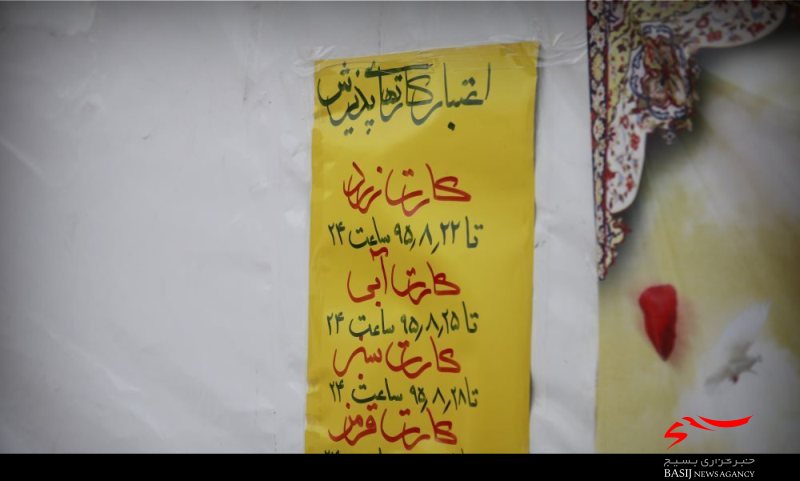 اعتبار کارتهای پذیرش
کارت زرد
تا ۹۵٫۸٫۲۲ ساعت ۲۴
کارت آبی
تا ۹۵٫۸٫۲۵ ساعت ۲۴
کارت سبز
تا ۹۵٫۸٫۲۸ ساعت ۲۴
کارت قرمز
خبرگزاری بسیج
BASIJ NEWS AGANCY